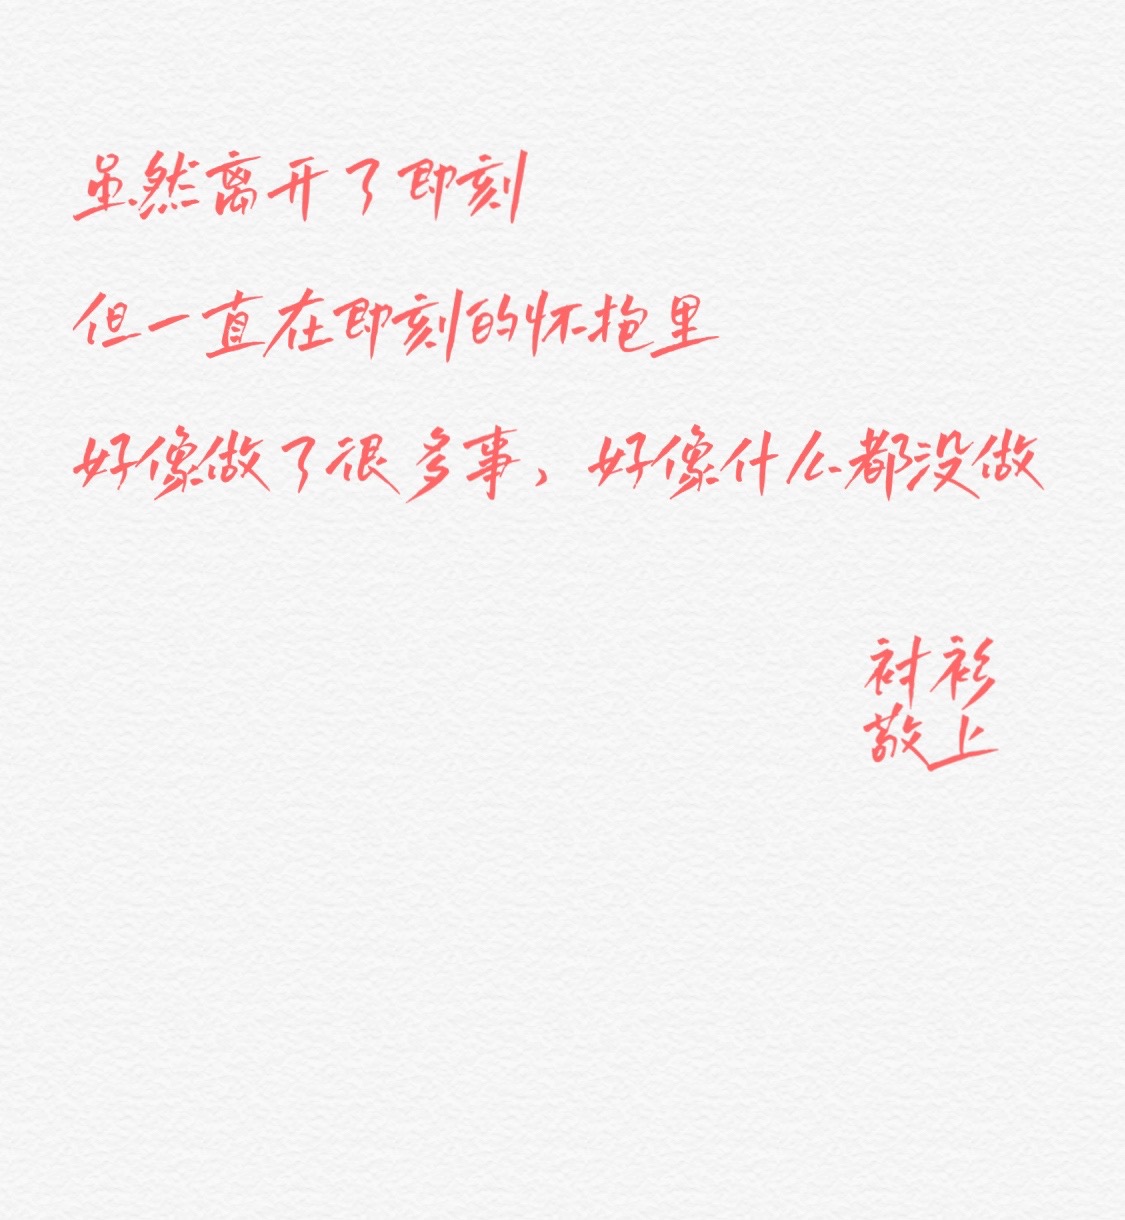 虽然离开了即刻
但一直在即刻的怀抱里
好像做了很多事，好像什么都没做
衬衫
敬上